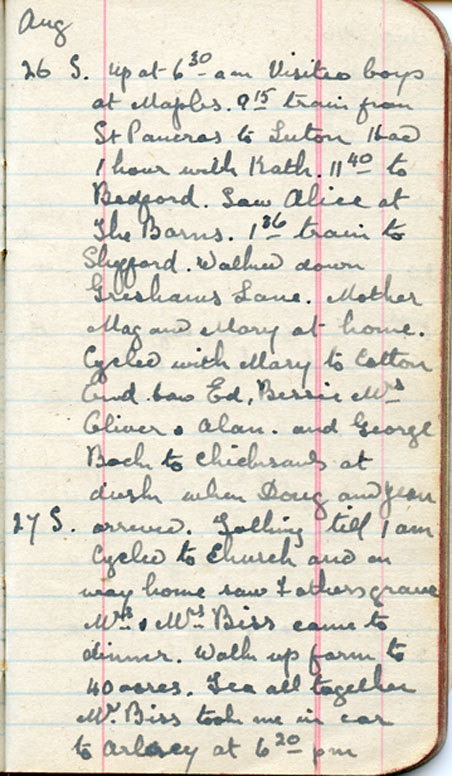 Aug
26 S. up at 6 30 am Visited boys
at Maples. 9 15 train from
St Pancras to Luton Had
1 hour with Kath. 11 40 to
Bedford. Saw Alice at
The Barns. 1 36 train to
Shefford. Walked down
Greshams Lane. Mother
Mag and Mary at home.
Cycled with Mary to Cotton
End. Saw Ed, Bessie Mrs
Oliver & Alan. and George
Back to Chicksands at
dusk when Doug and Jean
27 S. arrived. Talking till 1 am
Cycled to Church and on
way home saw Fathers grave
Mr & Mrs Biss came to
dinner. Walk up farm to
40 acres. Tea all together
Mr Biss took me in car
to Arlesey at 6 20 pm